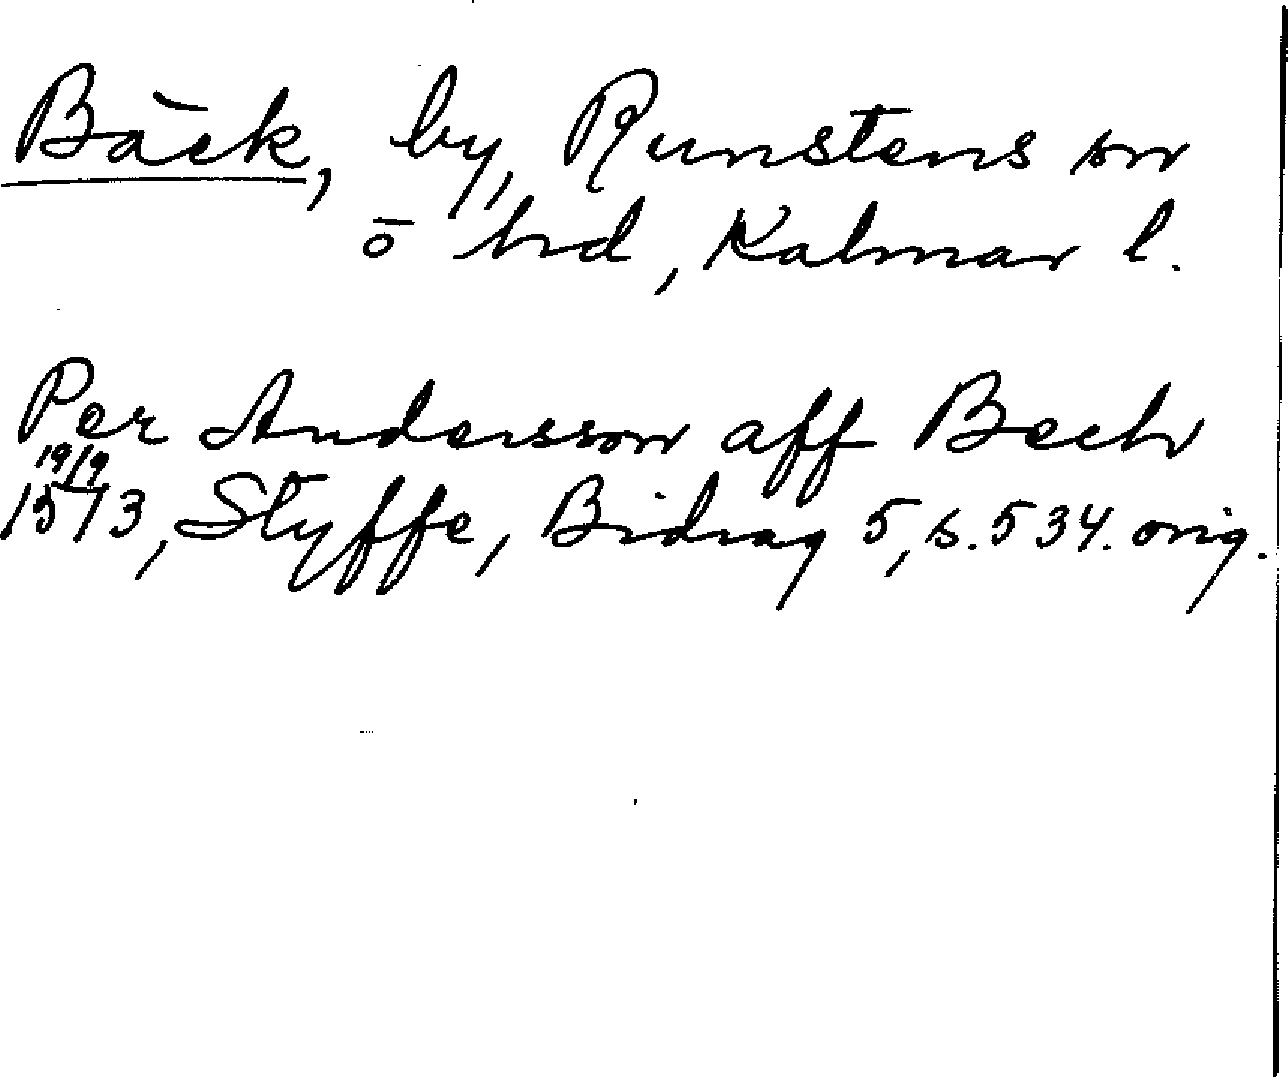 Bäck, by, Runstens sn
ö hd, Kalmar l.
Per Andersson aff Bech
19/9
1573, Styffe, Bidrag 5, s. 534. orig.